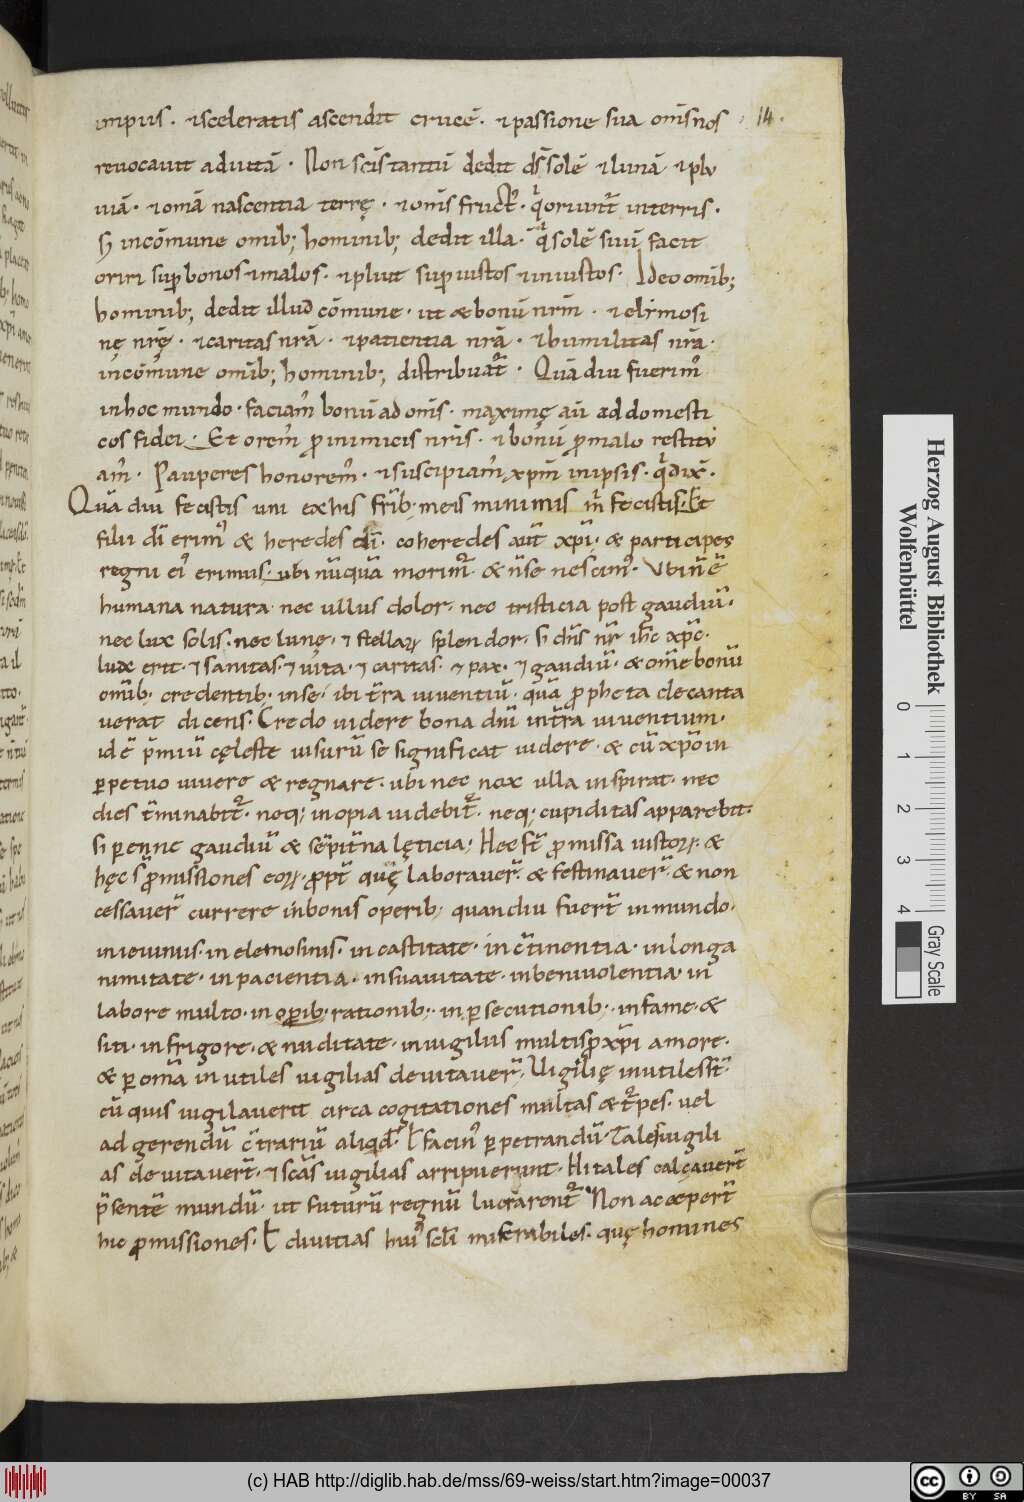 impius · ⁊ sceleratis ascendit crucē · ⁊ passione sua om̄s nos
14 ·
reuocauit ad uitā · Non sc̄is tantū dedit ds̄ solē ⁊ lunā ⁊ plu
uiā · ⁊ om̄a nascentia terrę · ⁊ om̄s fruct᷒ · q̄ oriunt᷑ in terris ·
s; in cōmune omīb; hominib; dedit illa · q̄ solē suū facit
oriri sup bonos ⁊ malos · ⁊ pluit sup iustos ⁊ iniustos · Ideo omīb;
hominib; dedit illud cōmune · ut & bonū nr̄m · ⁊ elymosi
nę nr̄ę · ⁊ caritas nr̄a · ⁊ patientia nr̄a · ⁊ humilitas nr̄a ·
in cōmune omīb; hominib; distribuat᷑ · Quā diu fuerim᷒
in hoc mundo · faciam᷒ bonū ad om̄s · maxime aū ad domesti
cos fidei · Et orem᷒ ꝓ inimicis nr̄is · ⁊ bonū ꝓ malo restitu
am᷒ · Pauperes honorem᷒ · ⁊ suscipiam᷒ xp̄m in ipsis · q̄ dix̄ ·
Quā diu fecistis uni ex his fr̄ib; meis minimis m̄ fecistis · Et
filii dī erim᷒ & heredes dī · coheredes aūt xp̄i · & participes
regni ei᷒ erimus · ubi nūquā morim᷑ · & n̄ se nescim᷒ · Vbi n̄ ē
humana natura nec ullus dolor · nec tristicia post gaudiū ·
nec lux solis · nec lunę · ⁊ stellaꝝ splendor · s; dn̄s nr̄ ih̄c xp̄c ·
lux erit · ⁊ sanitas · ⁊ uita · ⁊ caritas · ⁊ pax · ⁊ gaudiū · & om̄e bonū
omīb; credentib; in se · ibi t̄ra uiuentiū · quā ꝓpheta decanta
uerat dicens · Credo uidere bona dn̄i in t̄ra uiuentium ·
id ē p̄miū cęleste uisurū se significat uidere · & cū xp̄o in
ꝑpetuo uiuere & regnare · ubi nec nox ulla inspirat · nec
dies t̄minabit᷑ · neq; inopia uidebit᷑ · neq; cupiditas apparebit ·
s; ꝑenne gaudiū & sēpit̄na lęticia; Hec st̄ ꝓmissa iustoꝝ · &
hęc s̄ ꝓmissiones eoꝝ · ꝓpt̄ quę laborauer̄ · & festinauer̄ · & non
cessauer̄ currere in bonis operib; quandiu fuer̄t in mundo ·
in ieiuniis · in elemosinis · in castitate · in c̄tinentia · in longa
nimitate · in pacientia · in suauitate · in beniuolentia · in
labore multo · in oꝑib; rationib; · in ꝑsecutionib; · in fame · &
siti · in frigore · & nuditate · in uigiliis multis ꝓ xp̄i amore ·
& ꝑ om̄a inutiles uigilias deuitauer̄; Uigilię inutiles st̄
cū quis uigilauerit circa cogitationes multas & t᷑pes · uel
ad gerendū c̄trariū aliqd̄ · ł facin᷒ ꝑpetrandū · Tales uigili
as deuitauer̄t · ⁊ sc̄as uigilias arripuerunt · Hi tales calcauer̄t
p̄sentē mundū · ut futurū regnū lucrarent᷑ · Non acceper̄t
hic ꝓmissiones · ł diuitias hui᷒ sc̄li miserabiles · quę homines
Herzog August Bibliothek
Wolfenbüttel
0 1 2 3 4
Gray Scale
(c) HAB http://diglib.hab.de/mss/69-weiss/start.htm?image=00037
cc BY SA